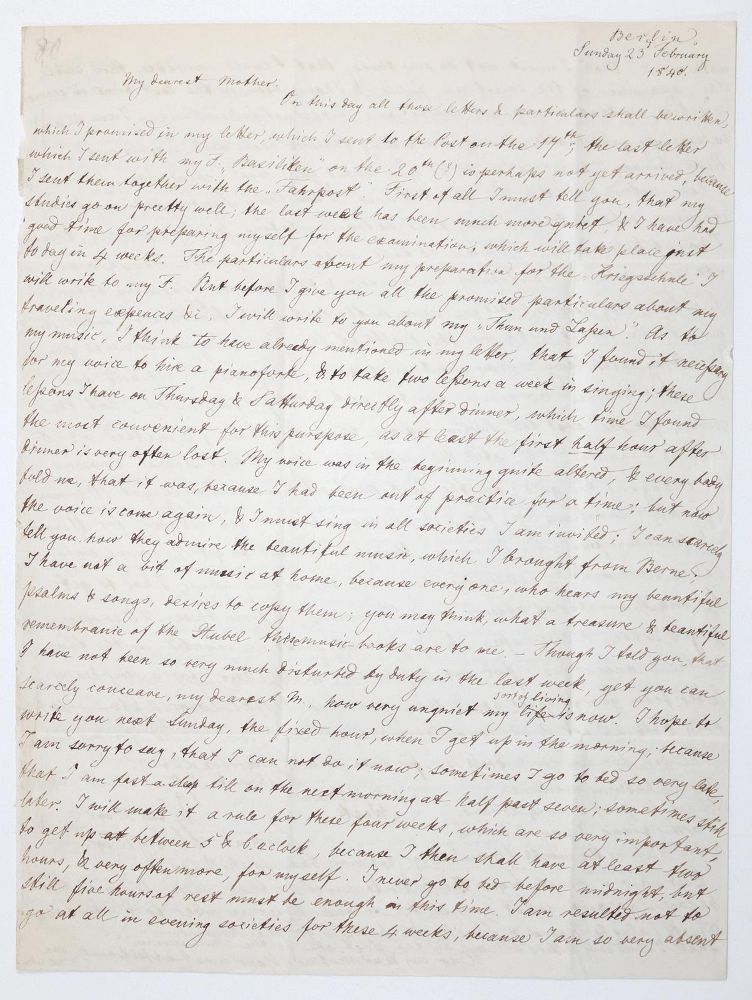 Berlin.
Sunday 23d February
1840.
My dearest Mother.
On this day all those letters & particulars shall be written,
which I promised in my letter, which I sent to the Post on the 17th; the last letter
which I sent with my F. "Basiliken" on the 20th (?) is perhaps not yet arrived, because
I sent them together with the "Fahrpost". First of all I must tell you, that my
studies go on preetty well; the last week has been much more quiet, & I have had
good time for preparing myself for the examination, which will take place just
to day in 4 weeks. The particulars about my preparation for the "Kriegsschule" I
will write to my F. But before I give you all the promised particulars about my
traveling expences &c, I will write to you about my "Thun und Lassen". As to
my music, I think to have already mentioned in my letter, that I found it necessary
for my voice to hire a pianoforte, & to take two lessons a week in singing; these
lessons I have on Thursday & Satturday directly after dinner, which time I found
the most convenient for this purspose, as at least the first half hour after
dinner is very often lost. My voice was in the beginning quite altered, & every body
told me, that it was, because I had been out of practice for a time; but now
the voice is come again, & I must sing in all societies I am invited; I can scarcely
tell you how they admire the beautiful music, which I brought from Berne.
I have not a bit of music at home, because every one, who hears my beautiful
psalms & songs, desires to copy them; you may think, what a treasure & beautiful
remembrance of the Stubel this music-books are to me. – Though I told you, that
I have not been so very much disturbed by duty in the last week, yet you can
scarcely conceave, my dearest M., how very unquiet my life
sort of living
is now. I hope to
write you next Sunday, the fixed hour, when I get up in the morning, because
I am sorry to say, that I can not do it now; sometimes I go to bed so very late,
that I am fast a sleep till on the next morning at half past seven; sometimes still
later. I will make it a rule for these four weeks, which are so very important,
to get up at between 5 & 6 aclock, because I then shall have at least two
hours, & very often more, for myself. I never go to bed before midnight, but
still five hours of rest must be enough in this time. I am resulted not to
go at all in evening societies for these 4 weeks, because I am so very absent